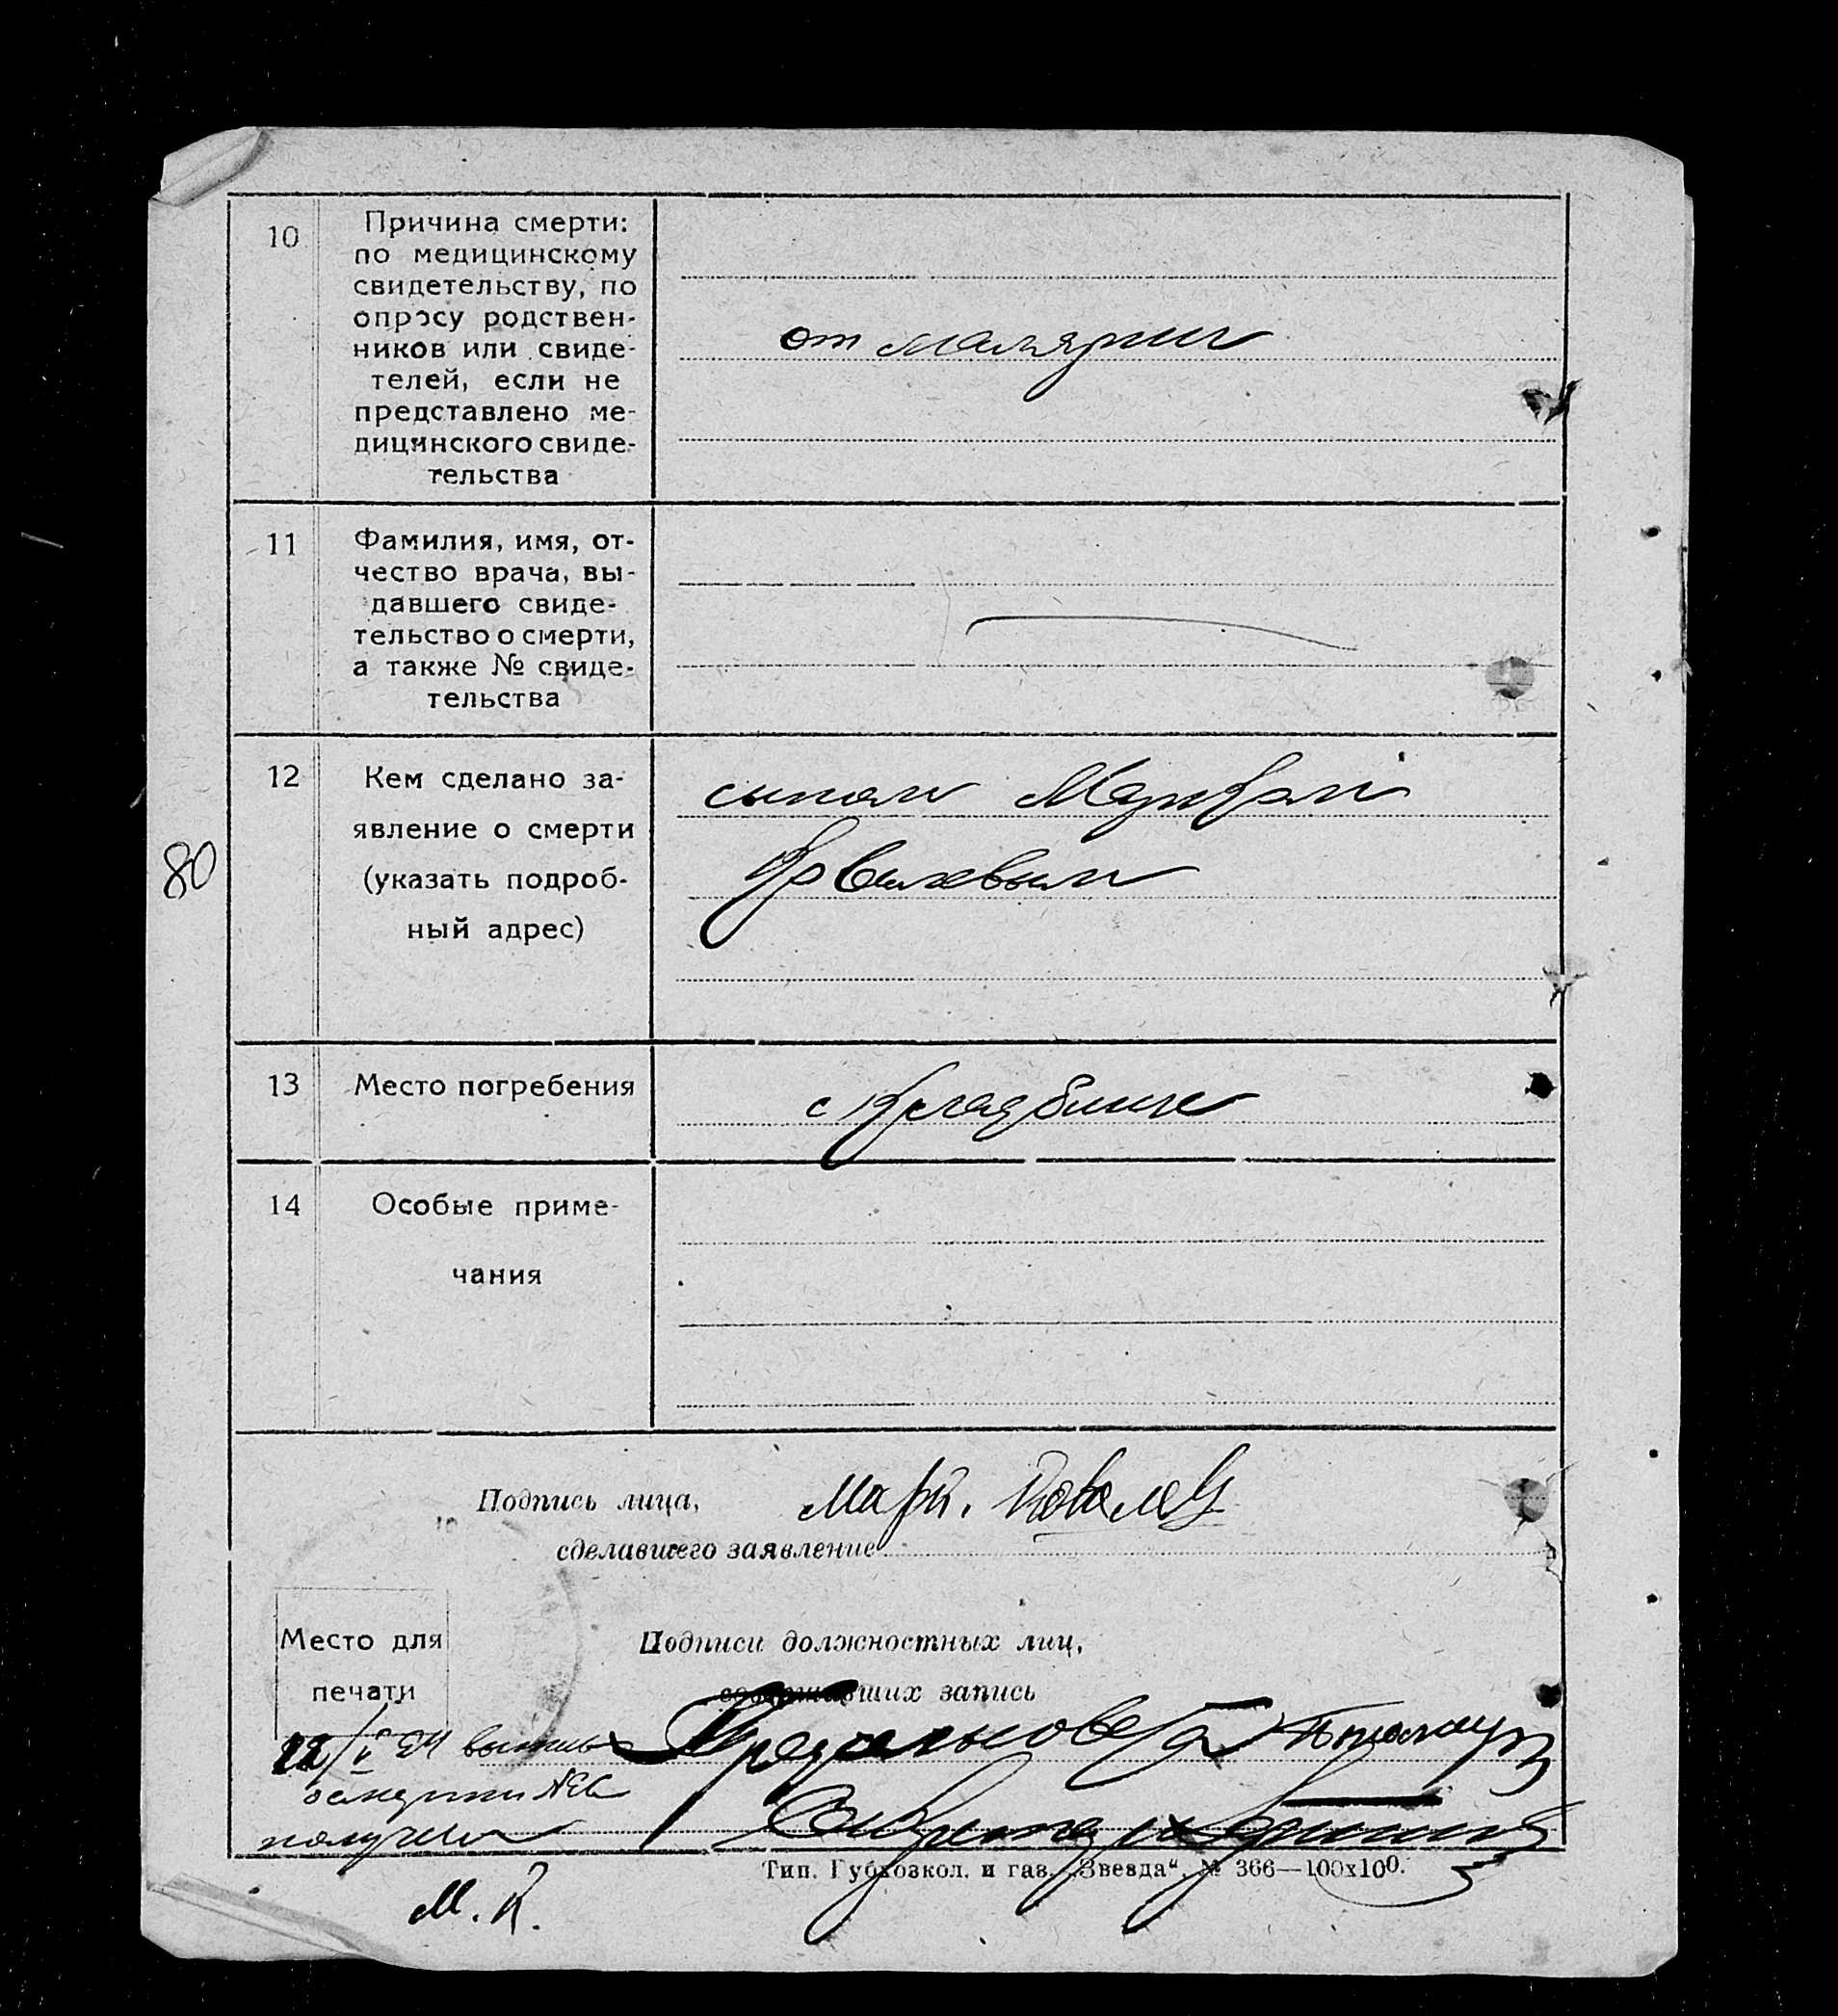 10
Причина смерти:
по медицинскому
свидетельству, по
опросу родствен-
ников или свиде-
телей, если не
представлено ме-
дицинского свиде-
тельства
от малярии
11
Фамилия, имя, от-
чество врача, вы-
давшего свиде-
тельство о смерти,
а также № свиде-
тельства
12
Кем сделано за-
явление о смерти
(указать подроб-
ный адрес)
сыном
Ковалевым
80
13
Место погребения
кладбище
14
Особые приме-
чания
Подпись лица,
сделавшего заявление
Марк. Ковалев
Место для
печати
Подписи должностных лиц,
запись
получил
Тип. Губхозкол. и газ. „Звезда“. № 366—100х100.
М. К.